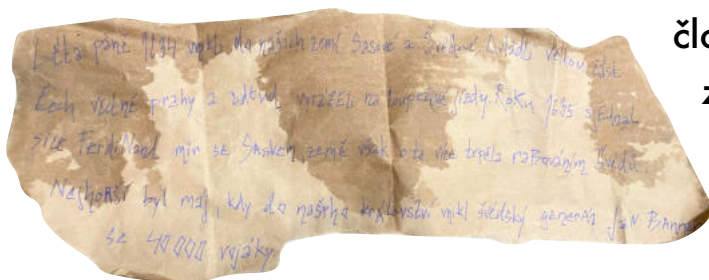 Léta páne 1634 vnikli do našich zemí Sasové a Švédové Ovládli velkou část
Čech včetně prahy a odtud vyráželi na loupežné jízdy. Roku 1635 sjednal
sice Ferdinand mír se Saskem, země však o to více trpěla rabováním Švédů.
Nejhorší byl maj, kdy do našeho království vnikl švédský generál Jan Banner
se 40000 vojáky.
člo
z